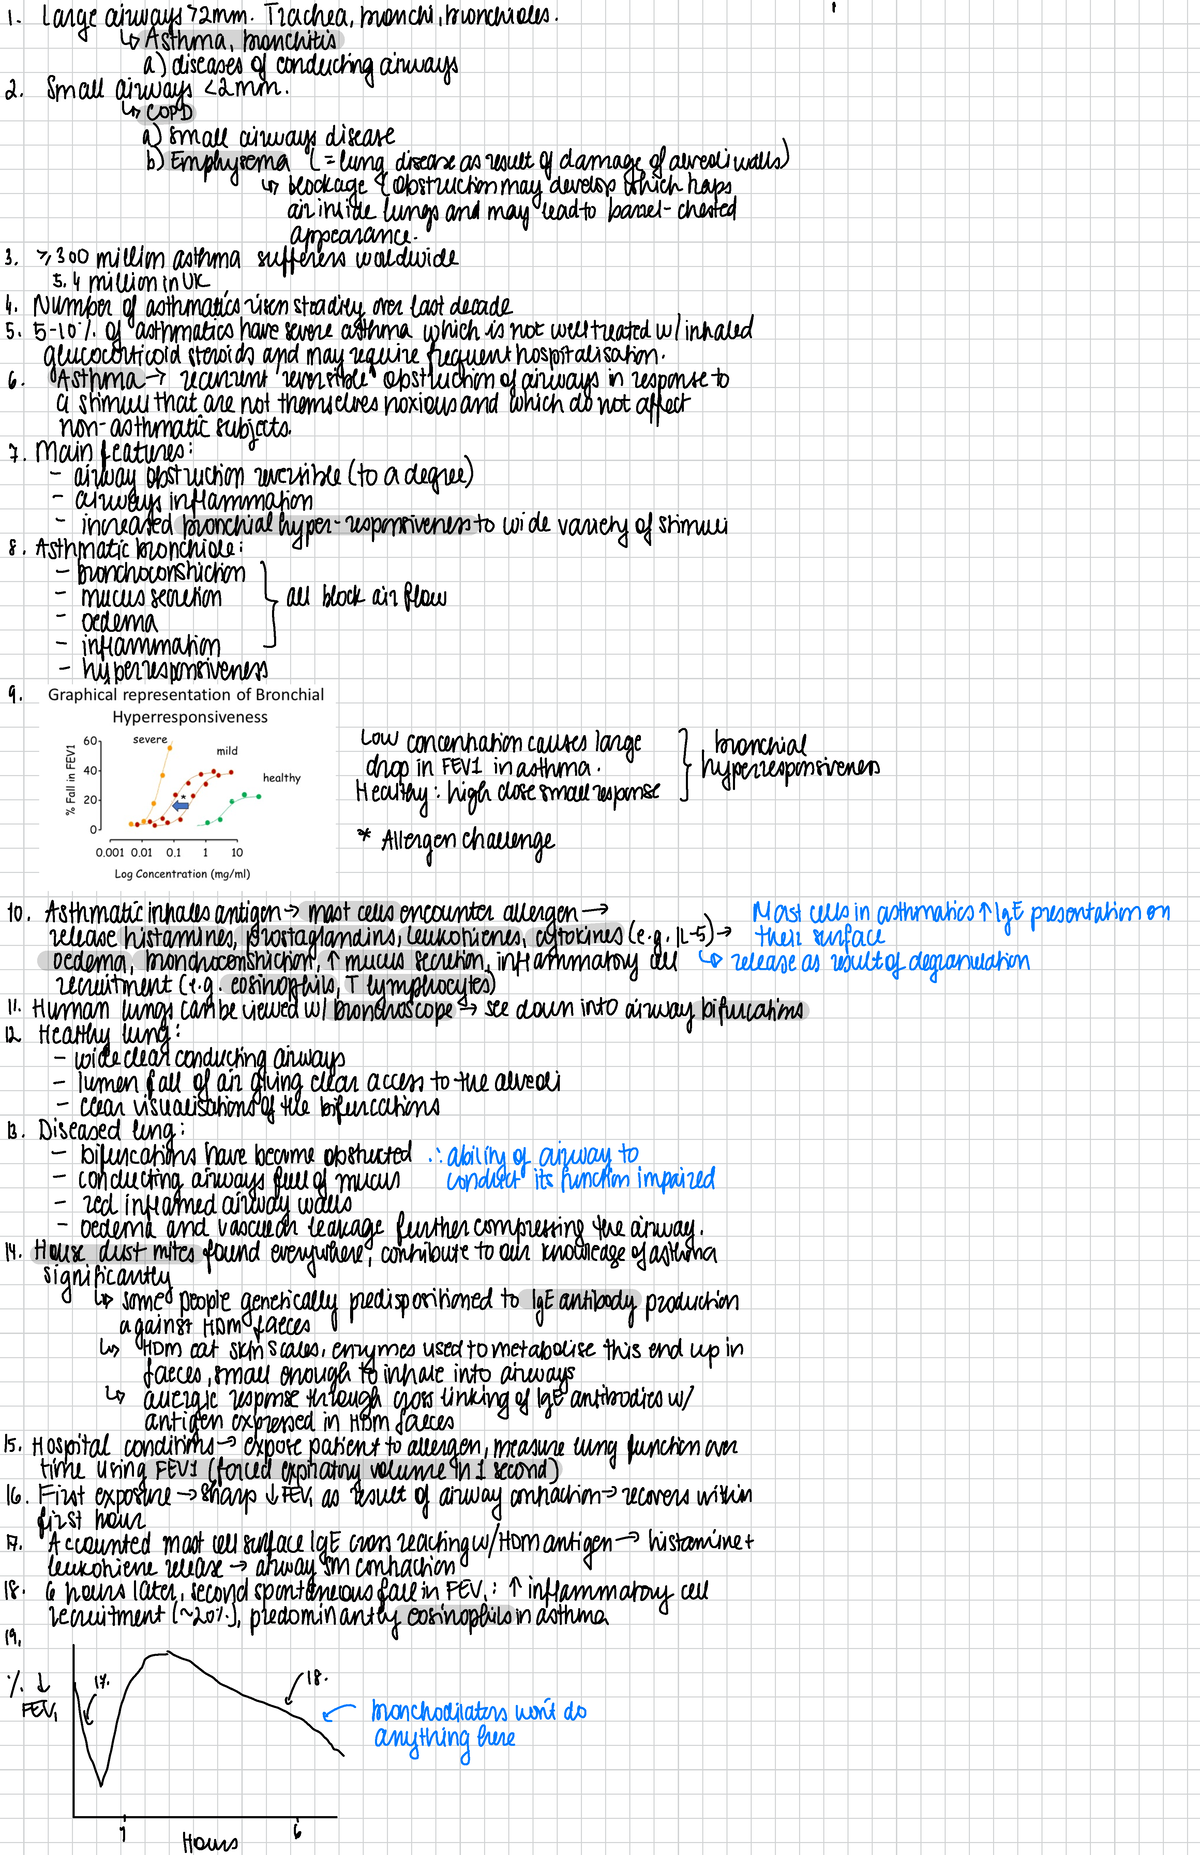 1. Large airways >2mm. Trachea, bronchi, bronchioles.
↳ Asthma, bronchitis
a) diseases of conducting airways
2. Small airways <2mm.
↳ COPD
a) small airways disease
b) Emphysema (= lung disease as result of damage of alveoli walls)
↳ blockage & obstruction may develop which traps
air inside lungs and may lead to barrel-chested
appearance.
3. ⩾300 million asthma sufferers worldwide
5.4 million in UK
4. Number of asthmatics risen steadily over last decade
5. 5-10% of asthmatics have severe asthma which is not well treated w/ inhaled
glucocorticoid steroids and may require frequent hospitalisation.
6. Asthma → recurrent "reversible" obstruction of airways in response to
a stimuli that are not themselves noxious and which do not affect
non-asthmatic subjects.
7. Main features:
- airway obstruction reversible (to a degree)
- airways inflammation
- increased bronchial hyper-responsiveness to wide variety of stimuli
8. Asthmatic bronchiole:
- bronchoconstriction
- mucus secretion
all block air flow
- oedema
- inflammation
- hyperresponsiveness
9. Graphical representation of Bronchial
Hyperresponsiveness
% Fall in FEV1
60
40
20
0
severe
mild
healthy
*
0.001 0.01 0.1 1 10
Log Concentration (mg/ml)
Low concentration causes large
drop in FEV1 in asthma.
Healthy: high dose small response
bronchial
hyperresponsiveness
* Allergen challenge
10. Asthmatic inhales antigen → mast cells encounter allergen →
release histamines, prostaglandins, leukotrienes, cytokines (e.g. IL-5) →
oedema, bronchoconstriction, ↑ mucus secretion, inflammatory cell
recruitment (e.g. eosinophils, T lymphocytes)
Mast cells in asthmatics ↑ IgE presentation on
their surface
↳ release as result of degranulation
11. Human lungs can be viewed w/ bronchoscope → see down into airway bifurcations
12. Healthy lung:
- wide clear conducting airways
- lumen full of air giving clear access to the alveoli
- clear visualisations of the bifurcations
13. Diseased lung:
- bifurcations have become obstructed ∴ ability of airway to
- conducting airways full of mucus conduct its function impaired
- red inflamed airway walls
- oedema and vascular leakage further compressing the airway.
14. House dust mites found everywhere, contribute to our knowledge of asthma
significantly
↳ some people genetically predispositioned to IgE antibody production
against HDM faeces
↳ HDM eat skin scales, enzymes used to metabolise this end up in
faeces, small enough to inhale into airways
↳ allergic response through cross linking of IgE antibodies w/
antigen expressed in HDM faeces
15. Hospital conditions → expose patient to allergen, measure lung function over
time using FEV1 (forced expiratory volume in 1 second)
16. First exposure → sharp ↓ FEV₁ as result of airway contraction → recovers within
first hour
17. Accounted mast cell surface IgE cross reacting w/ HDM antigen → histamine +
leukotriene release → airway SM contraction
18. 6 hours later, second spontaneous fall in FEV₁: ↑ inflammatory cell
recruitment (~20%), predominantly eosinophils in asthma
19.
% ↓
FEV₁
17.
18.
bronchodilators won't do
anything here
1 6
Hours